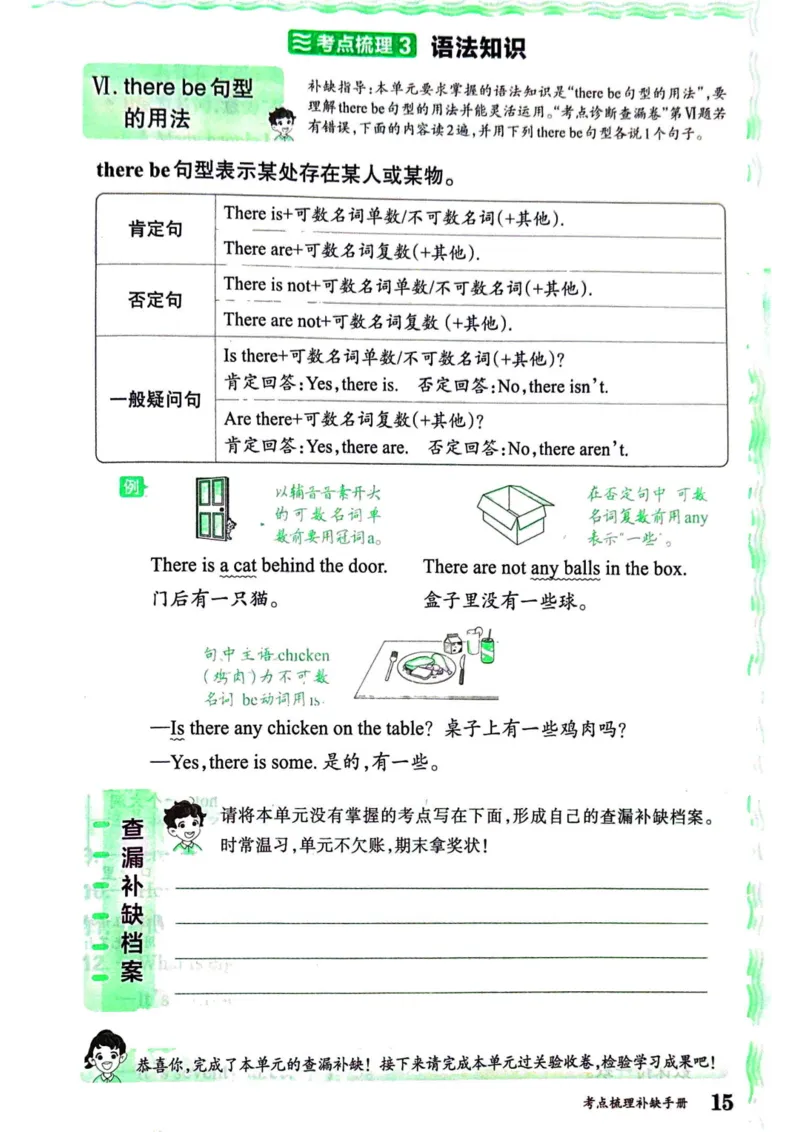 考点梳理3 语法知识
Ⅵ. there be句型
的用法
补缺指导:本单元要求掌握的语法知识是“there be句型的用法”,要
理解there be句型的用法并能灵活运用。“考点诊断查漏卷”第Ⅵ题若
有错误,下面的内容读2遍,并用下列there be句型各说1个句子。
there be句型表示某处存在某人或某物。
肯定句
There is+可数名词单数/不可数名词(+其他).
There are+可数名词复数(+其他).
否定句
There is not+可数名词单数/不可数名词(+其他).
There are not+可数名词复数 (+其他).
一般疑问句
Is there+可数名词单数/不可数名词(+其他)?
肯定回答:Yes,there is. 否定回答:No,there isn’t.
Are there+可数名词复数(+其他)?
肯定回答:Yes,there are. 否定回答:No,there aren’t.
例
以辅音音素开头
的可数名词单
数前要用冠词a。
There is a cat behind the door.
门后有一只猫。
在否定句中 可数
名词复数前用any
表示“一些”。
There are not any balls in the box.
盒子里没有一些球。
句中主语chicken
(鸡肉)为不可数
名词 be动词用is.
—Is there any chicken on the table? 桌子上有一些鸡肉吗?
—Yes,there is some. 是的,有一些。
查漏补缺档案
请将本单元没有掌握的考点写在下面,形成自己的查漏补缺档案。
时常温习,单元不欠账,期末拿奖状!
恭喜你,完成了本单元的查漏补缺! 接下来请完成本单元过关验收卷,检验学习成果吧!
考点梳理补缺手册 15